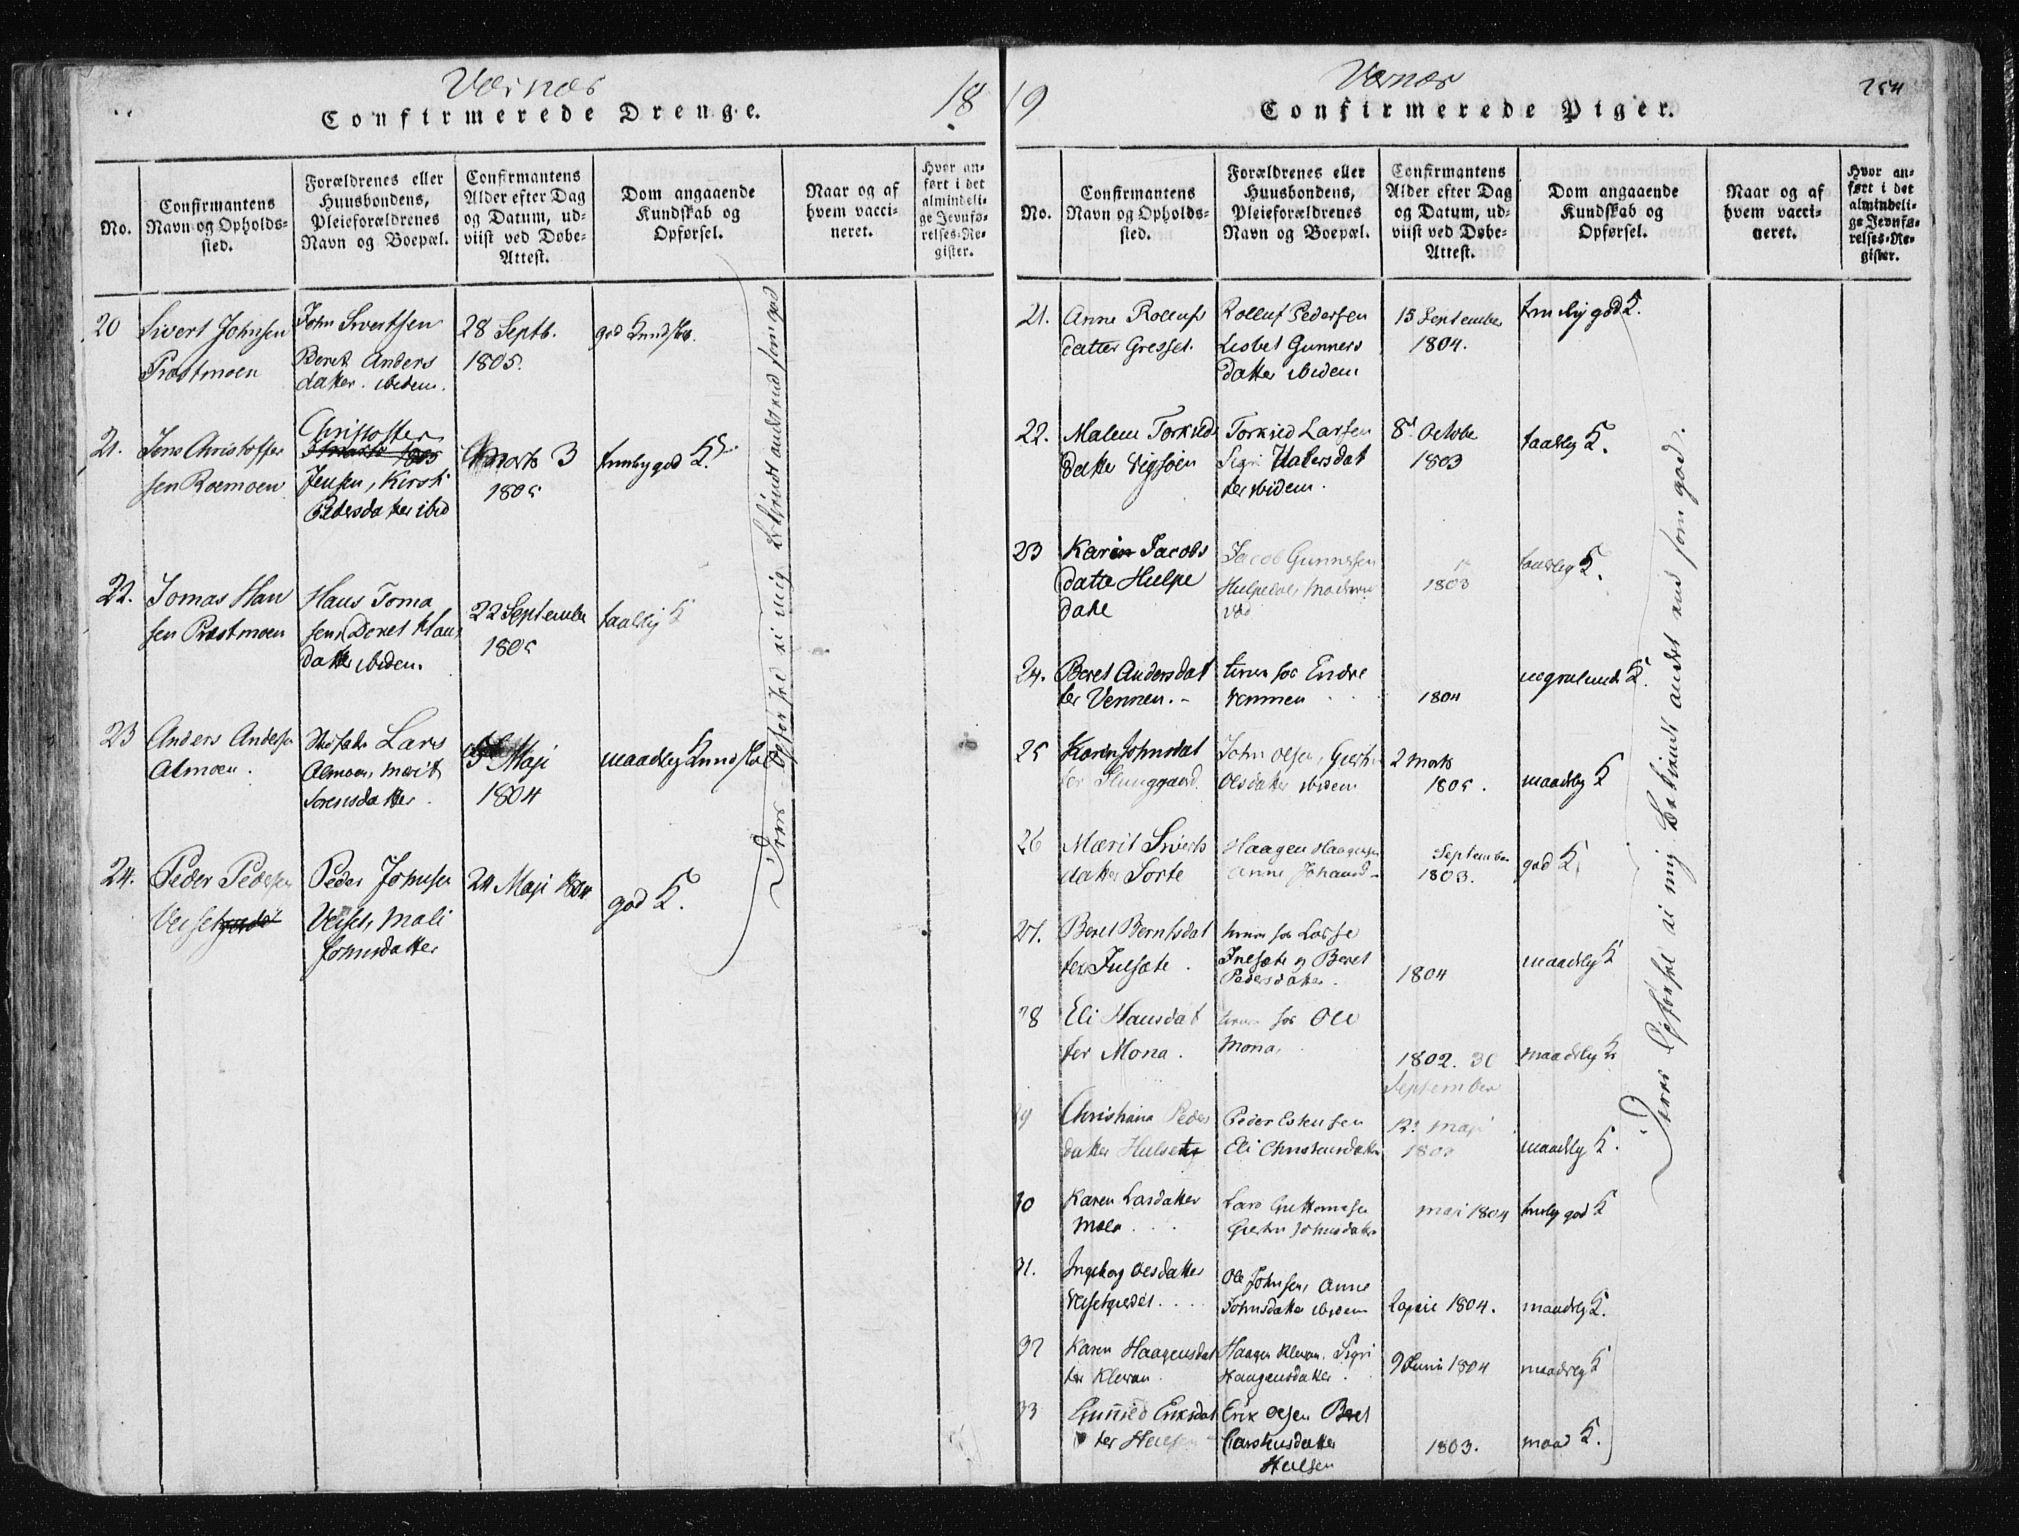 Værnæs
Confirmerede Drenge.
18
No.
Confirmantens Navn og Opholds-sted.
Forældrenes eller Huusbondens, Pleieforældrenes Navn og Boepæl.
Confirmantens Alder efter Dag og Datum, ud-viist ved Døbe-Attest.
Dom angaaende Kundskab og Opførsel.
Naar og af hvem vacci-neret.
Hvor an-ført i det almindeli-ge Jevnfø-relses-Re-gister.
20
Sivert Johnsen
Præstmoen
John Sivertsen
Beret Anders
datter ibidem.
28 Septb.
1805.
god Kundskb.
21.
Jens Christoffer
sen Roemoen
Christoffer
Jensen, Kirsti
Pedersdatter ibid
Marts 3
1805
temlig god K.
22.
Tomas Han
sen Præstmoen
Hans Toma
sen, Beret Han
datter ibidem.
22 September
1805
taalelig K
23
Anders Andersen
Almoen.
Lars
Almoen, Marit
Sorensdatter.
5 Maji
1804
maadelig Kundskab
24.
Peder Pedersen
Veiset
Peder Johnsen
Veiset, Mali
Johnsdatter
24 Maji 1804
god K.
Deres Opførsel ei mig bekjendt andet end som god
19
Værnæs
Confirmerede Piger.
254
No.
Confirmantens Navn og Opholds-sted.
Forældrenes eller Huusbondens, Pleieforældrenes Navn og Boepæl.
Confirmantens Alder efter Dag og Datum, ud-viist ved Døbe-Attest.
Dom angaaende Kundskab og Opførsel.
Naar og af hvem vacci-neret.
Hvor an-ført i det almindeli-ge Jevnfø-relses-Re-gister.
21.
Anne Rollufs
datter Gresset.
Rolluf Pedersen
Lisbet Gunners
datter ibidem
15 September
1804.
temelig god K.
22.
Malene Torkilds
datter Vigsøen
Torkild Larsen
Sigri
ter ibidem.
8de Octobe
1803
taalelig K.
23
Karen Jacobs
datter Hulpe
dahl
Jacob Gunnersen
1803
taalelig K.
24.
Beret Andersdat
ter Vennen.-
tiener hos Endre
Vennen
1804
K.
25
Karen Johnsdat
ter
John Olsen,
Olsdatter ibidem
2 Marts
1805.
maadelig K
26
Marit Siverts
datter Sorte
Haagen Haagensen
Anne Johansd-
September
1803.
god K.
27.
Beret Berntsdat
ter Julsæte.
tiener hos Larse
Julsæte og Beret
Pedersdatter.
1804
maadelig K
28
Eli Hansdat
ter Mona.
tiener hos Ole
Mona.
1802. 30
September
maadelig K
29
Christiana Peders
datter Hulset
Peder Estensen
Eli Christensdatter
Maji
maadelig K.
30
Karen Larsdatter
Moen
Lars Guttormsen
Johnsdatter
Maji 1804
temlig god K
31.
Ingeborg Olsdatter
Ole Johnsen, Anne
Johnsdatter ibidem
2 April 1804.
maadelig K.
32
Karen Haagensdat
ter Klevan.
Haagen Klevan, Sigri
Haagensdatter.
9 Juni 1804
maadelig K
33
Gunild Eriksdat
ter
Erik Olsen Beret
Carstensdatter
1803.
maad K.
Deres Opførsel ei mig bekiendt andet end som god.